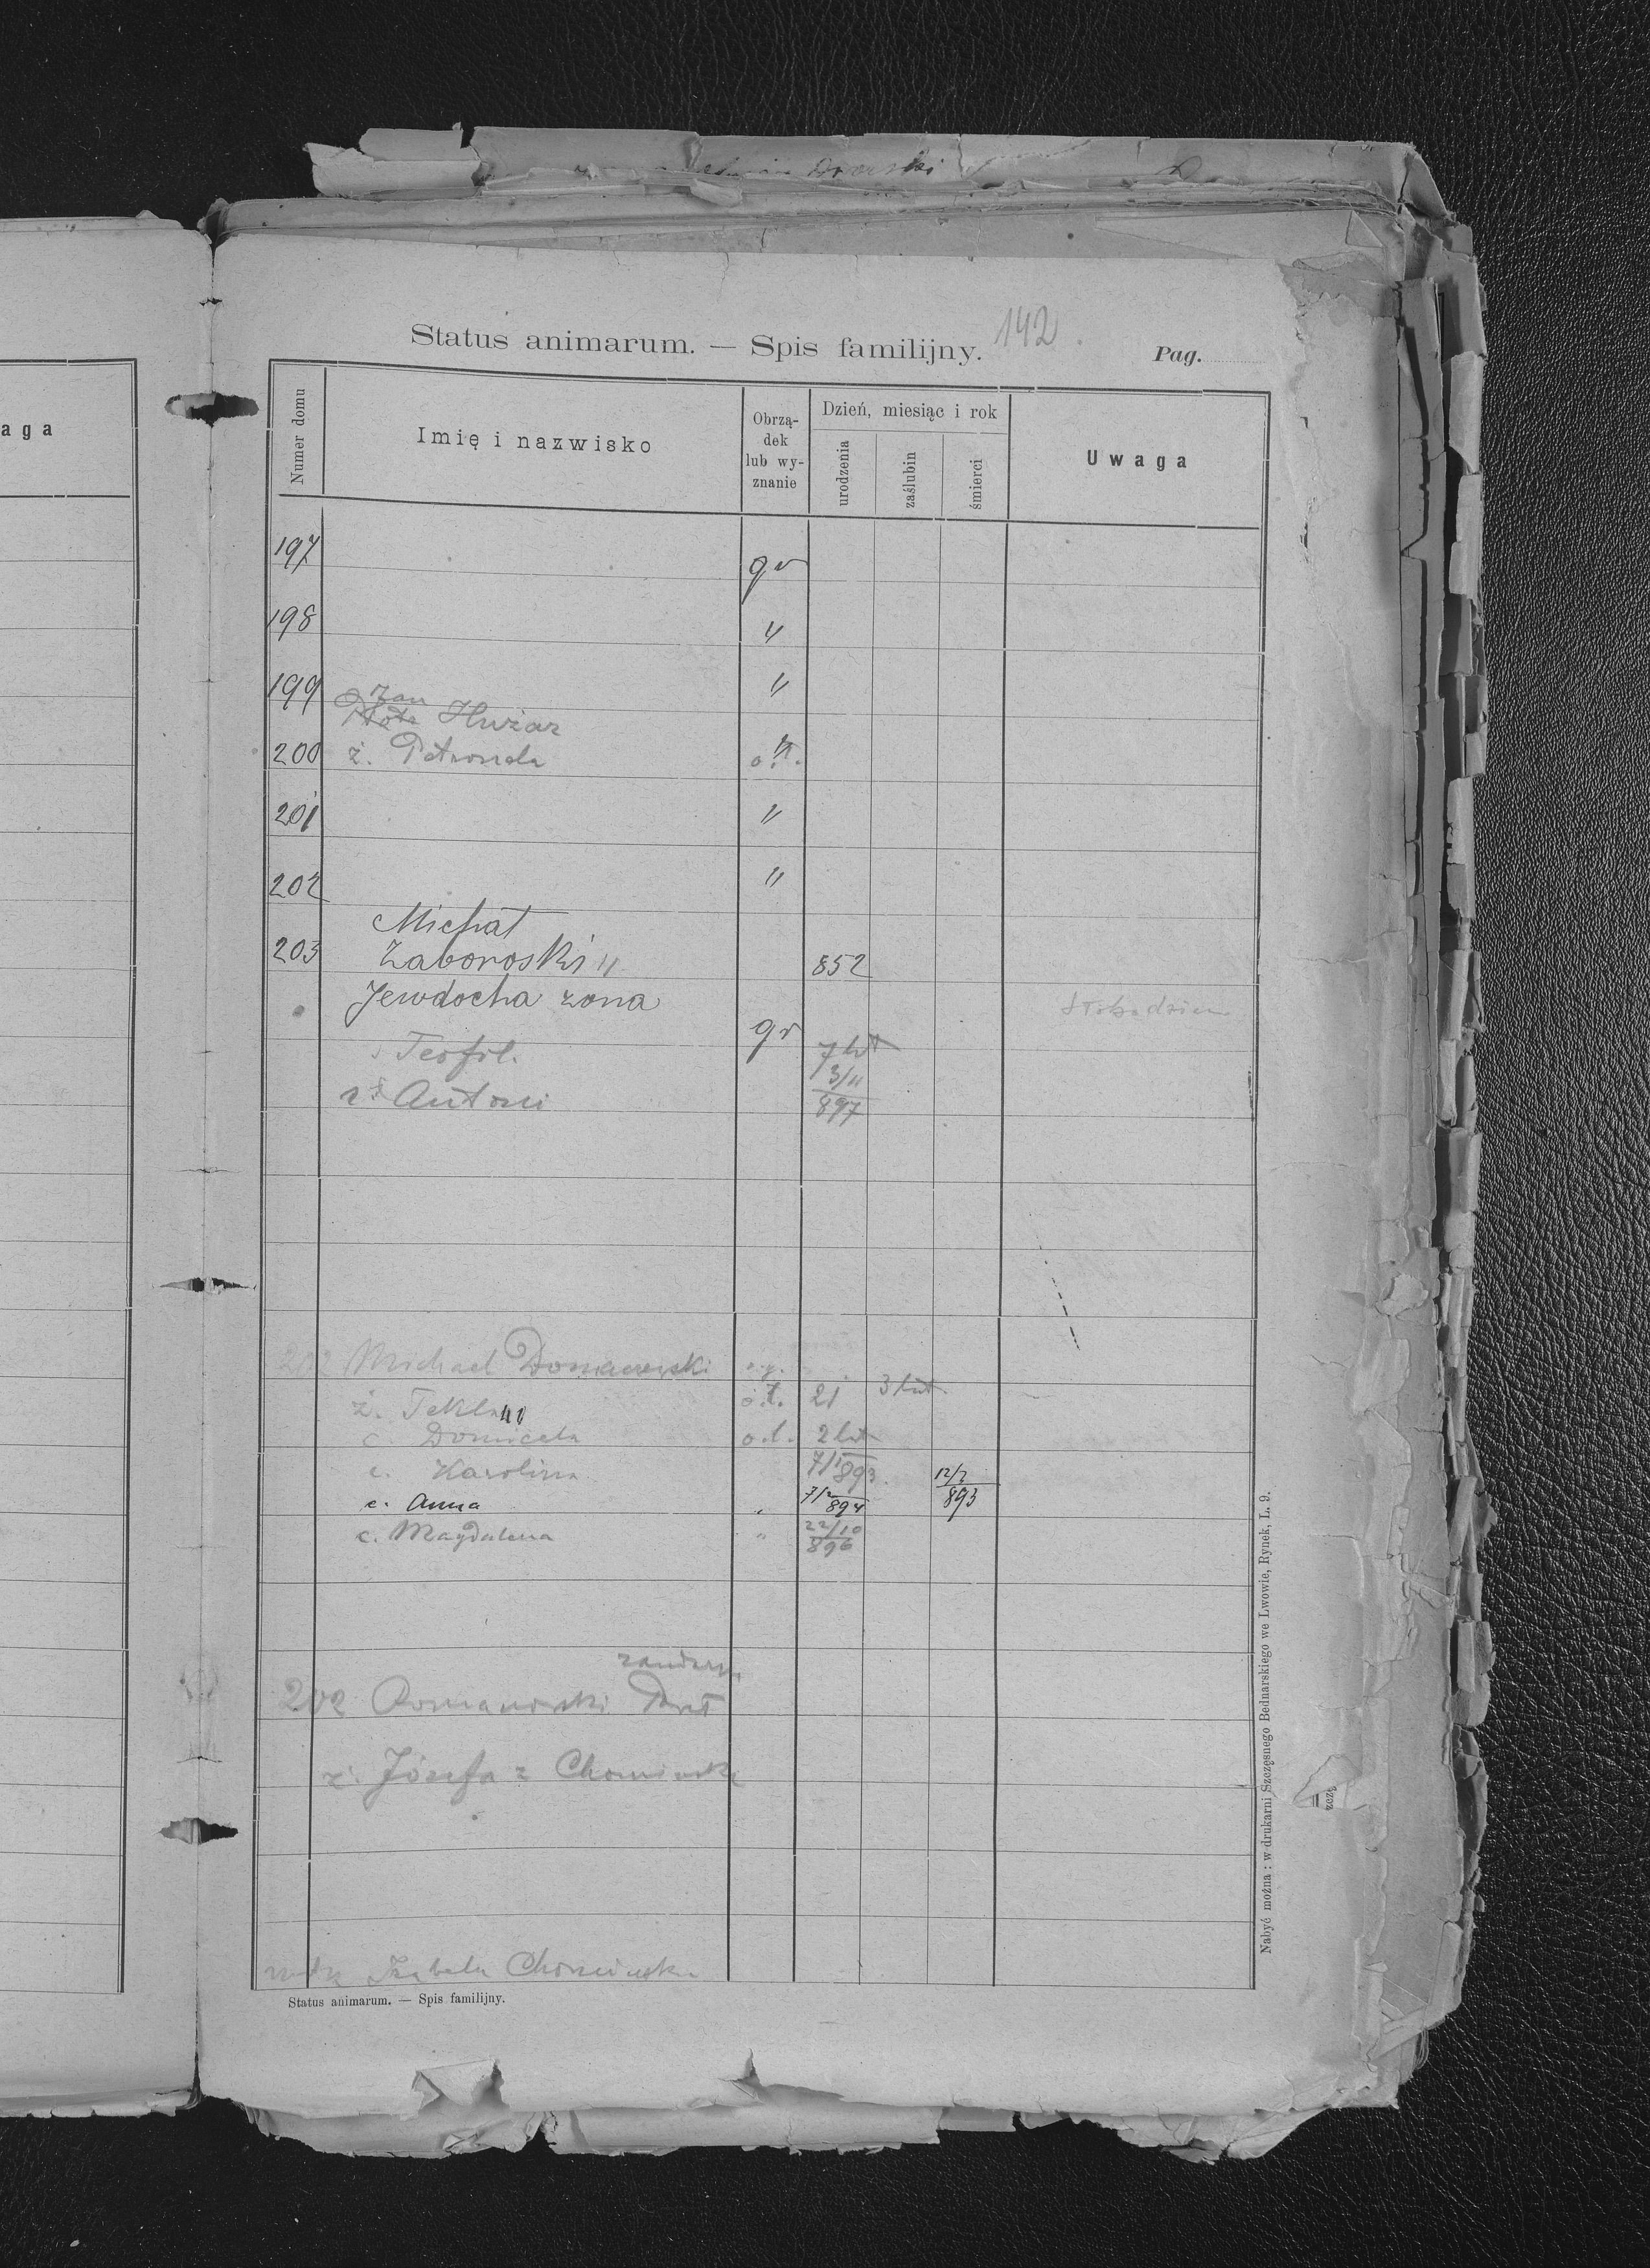 aga
Status animarum. — Spis familijny.
142.
Pag.
Numer domu
Imię i nazwisko
Obrzą-
dek
lub wy-
znanie
Dzień, miesiąc i rok
urodzenia
zaślubin
śmierci
Uwaga
197 gr
198 "
199 "
Jan
Huzar
200 ż. Petronela o.ł.
201 "
202 "
Michał
203 Zaboroski " 852
Jewdocha zona
Teofil. gr 7 lat
3/11
Antoni 897
202 Michael Domaczewski
ż. Tekla o.ł. 21 3 lut
c. Domicela o.ł. 2 lat
c. Karolina 7/1 893 12/2 893
c. Anna " 7/2 894
c. Magdalena " 22/10 896
żandarm
202 Romanowski
ż. Józefa z Chomińska
Izabela Chomińska
Status animarum. — Spis familijny.
Nabyć można: w drukarni Szczęsnego Bednarskiego we Lwowie, Rynek, L. 9.